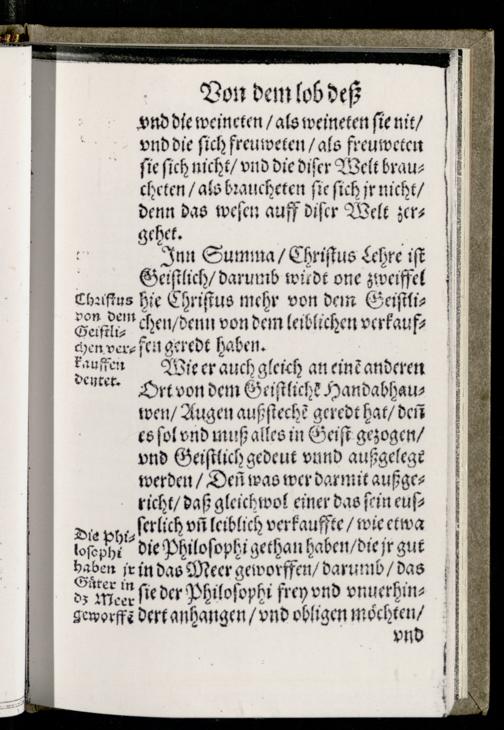 Von dem lob deß
vnd die weineten / als weineten sie nit/
vnd die sich freuweten / als freuweten
sie sich nicht/ vnd die diser Welt brau-
cheten / als braucheten sie sich jr nicht/
denn das wesen auff diser Welt zer-
gehet.
Inn Summa / Christus Lehre ist
Geistlich / darumb wirdt one zweiffel
hie Christus mehr von dem Geistli-
chen/denn von dem leiblichen verkauf-
fen geredt haben.
Christus
von dem
Geistli-
chen ver-
kauffen
deutet.
Wie er auch gleich an einē anderen
Ort von dem Geistlichē Handabhau-
wen/ Augen außstechē geredt hat/ deñ
es sol vnd muß alles in Geist gezogen/
vnd Geistlich gedeut vnnd außgelegt
werden / Deñ was wer darmit außge-
richt/ daß gleichwol einer das sein eus-
serlich vñ leiblich verkauffte / wie etwa
die Philosophi gethan haben/die jr gut
in das Meer geworffen/ darumb / das
sie der Philosophi frey vnd vnuerhin-
dert anhangen / vnd obligen möchten/
Die Phi-
losophi
haben jr
Güter in
dz Meer
geworffē
vnd